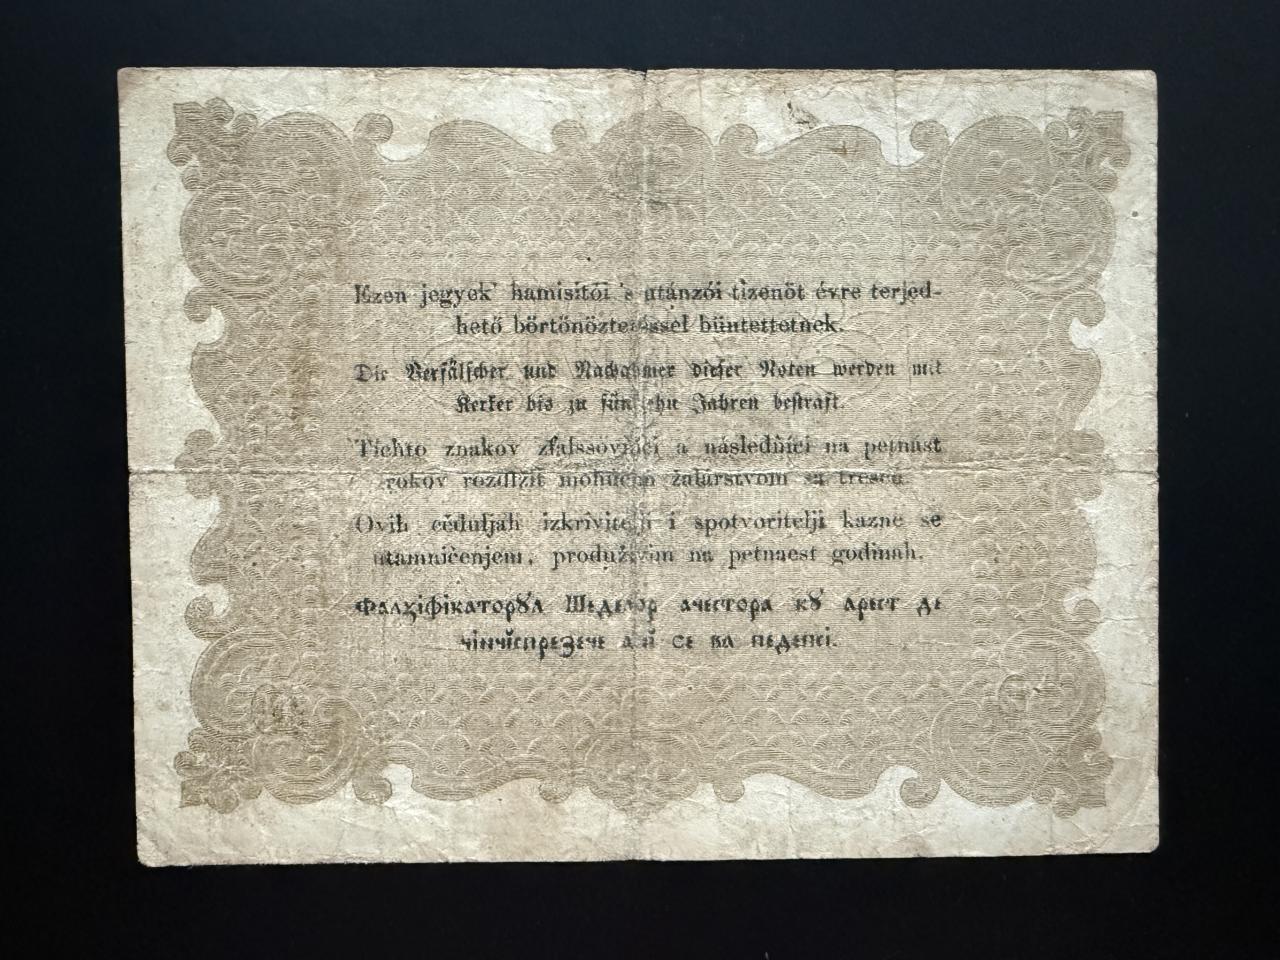 Ezen jegyek' hamisítói 's utánzói tizenöt évre terjed-
hető börtönöztetéssel büntettetnek.
Die Verfälscher und Nachahmer dieser Noten werden mit
Kerker bis zu fünfzehn Jahren bestraft.
Tíchto znakov zfalssovňíci a následňíci na petnást
rokov rozdlžit mohúcím žalárstvom sa trescú.
Ovih céduljah izkrivitelji i spotvoritelji kazne se
utamničenjem, produživim na petnaest godinah.
Фалхіфікаторꙋл ачестора кꙋ арест де
чінчіспрезече ай се ва педепсі.